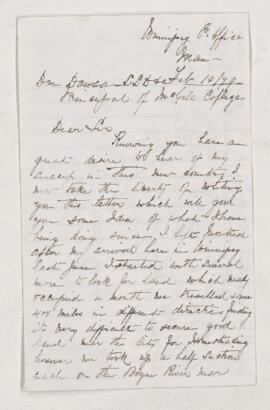 Winnipeg P. Office
Man—
Dr Dawson L.L.D &c Feb 10/79
Principal of McGill College
Dear Sir
Knowing you have a
great desire to hear of my
success in this new country I
now take the liberty of writing
you this letter which will give
you some idea of what I have
being doing since I left Montreal
after my arrival here in Winnipeg
last June I started with several
more to look for land which nearly
occupied a month we travelled some
400 miles in different directions finding
it very difficult to secure good
land near the City for Homesteading
however we took up a half section
each on the Boyne River near